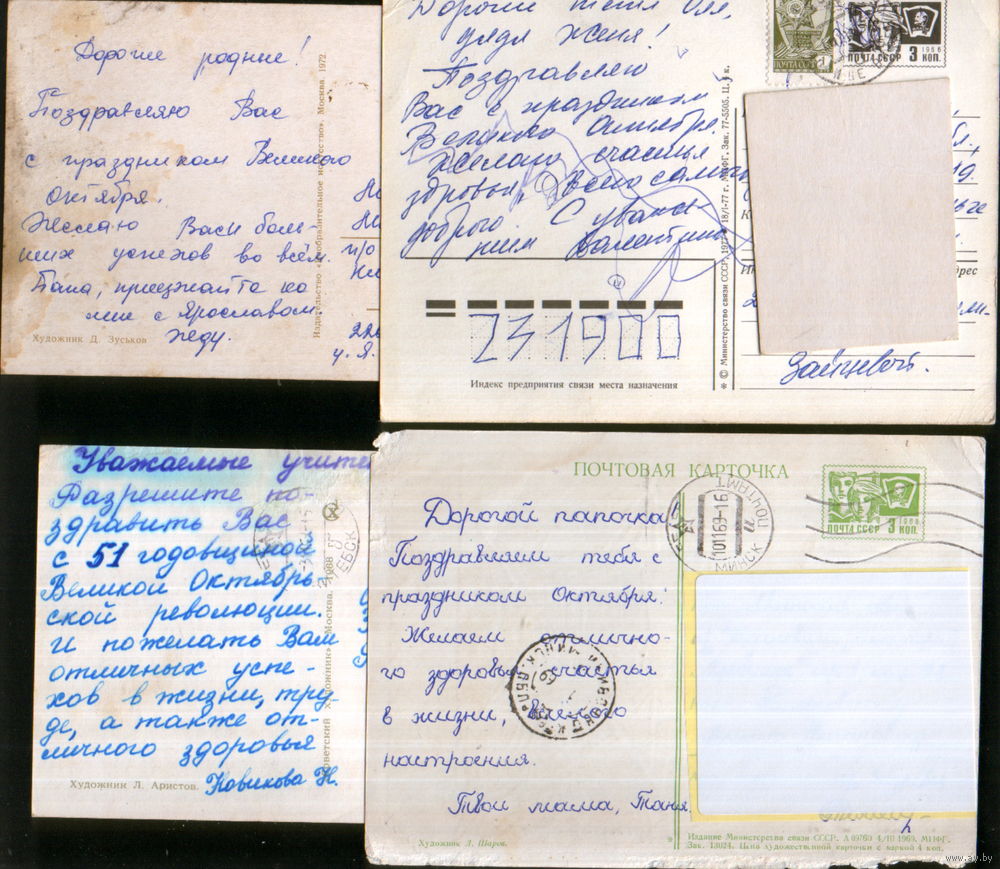 Дорогие родные!
Поздравляю Вас
с праздником Великого
Октября.
Желаю Вам боль-
ших успехов во всём.
Папа, приезжайте ко
мне с Ярославом.
Жду.
Художник Д. Зуськов
Издательство «Изобразительное искусство». Москва. 1972
Дорогие тётя Оля,
дядя Женя!
Поздравляю
Вас с праздником
Великого Октября.
Желаю счастья
здоровья, всего самого
доброго. С уваже-
нием Валентина
231900
Индекс предприятия связи места назначения
© Министерство связи СССР, 1977
18/I-77 г. МПФГ. Зак. 77-5505. Ц. 4 к.
ПОЧТА СССР
1966
ПОЧТА СССР 3 КОП.
Зайцевой.
Уважаемые учите
Разрешите по-
здравить Вас
с 51 годовщиной
Великой Октябрь
ской революции.
и пожелать Вам
отличных успе-
хов в жизни, тру-
де, а также от-
личного здоровья
Новикова Н.
Художник Л. Аристов.
Советский художник» Москва. 1968
ПОЧТОВАЯ КАРТОЧКА
Дорогой папочка
Поздравляем тебя с
праздником Октября!
Желаем отлично-
го здоровья счастья
в жизни,
настроения.
Твои мама, Таня,
Художник Л. Шаров.
101169-16
МИНСК
ПОЧТАМТ
1966
ПОЧТА СССР 3 КОП.
Издание Министерства связи СССР. А 09769 4/IX 1969. МПФГ.
Зак. 13024. Цена художественной карточки с маркой 4 коп.
www.ay.by